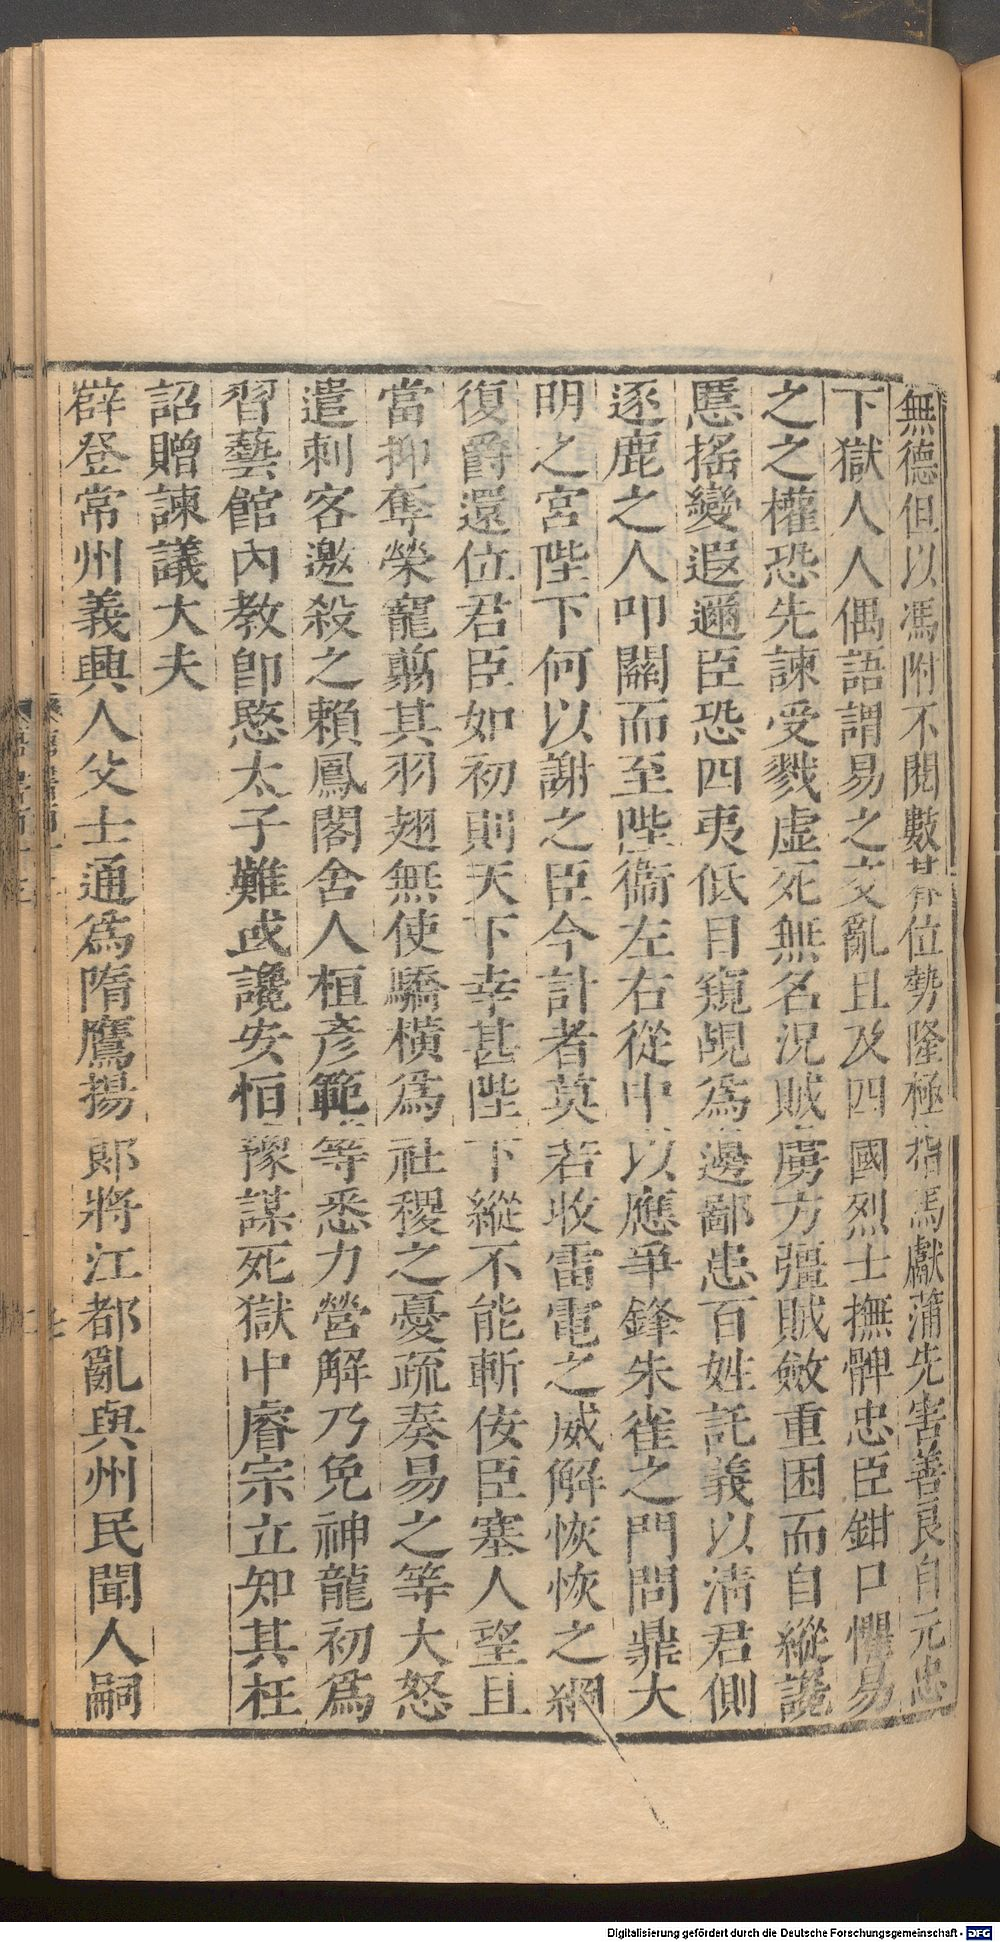 無德但以馮附不閱數朞位勢隆極指馬獻蒲先害善良自元忠
下獄人人偶語謂易之交亂且及四國烈士撫髀忠臣鉗口懼易
之之權恐先諫受戮虛死無名況賊虜方彊賊斂重困而自縱讒
慝搖變遐邇臣恐四夷低目窺覘爲邊鄙患百姓託義以淸君側
逐鹿之人叩關而至陛衞左右從中以應爭鋒朱雀之門問鼎大
明之宮陛下何以謝之臣今計者莫若收雷電之威解恢恢之網
復爵還位君臣如初則天下幸甚陛下縱不能斬佞臣塞人望且
當抑奪榮寵翦其羽翅無使驕橫爲社稷之憂疏奏易之等大怒
遣刺客邀殺之賴鳳閣舍人桓彥範等悉力營解乃免神龍初爲
習藝館內敎卽愍太子難或讒安恒豫謀死獄中睿宗立知其枉
詔贈諫議大夫
薛登常州義興人父士通爲隋鷹揚郞將江都亂與州民聞人嗣
七
Digitalisierung gefördert durch die Deutsche Forschungsgemeinschaft - DFG